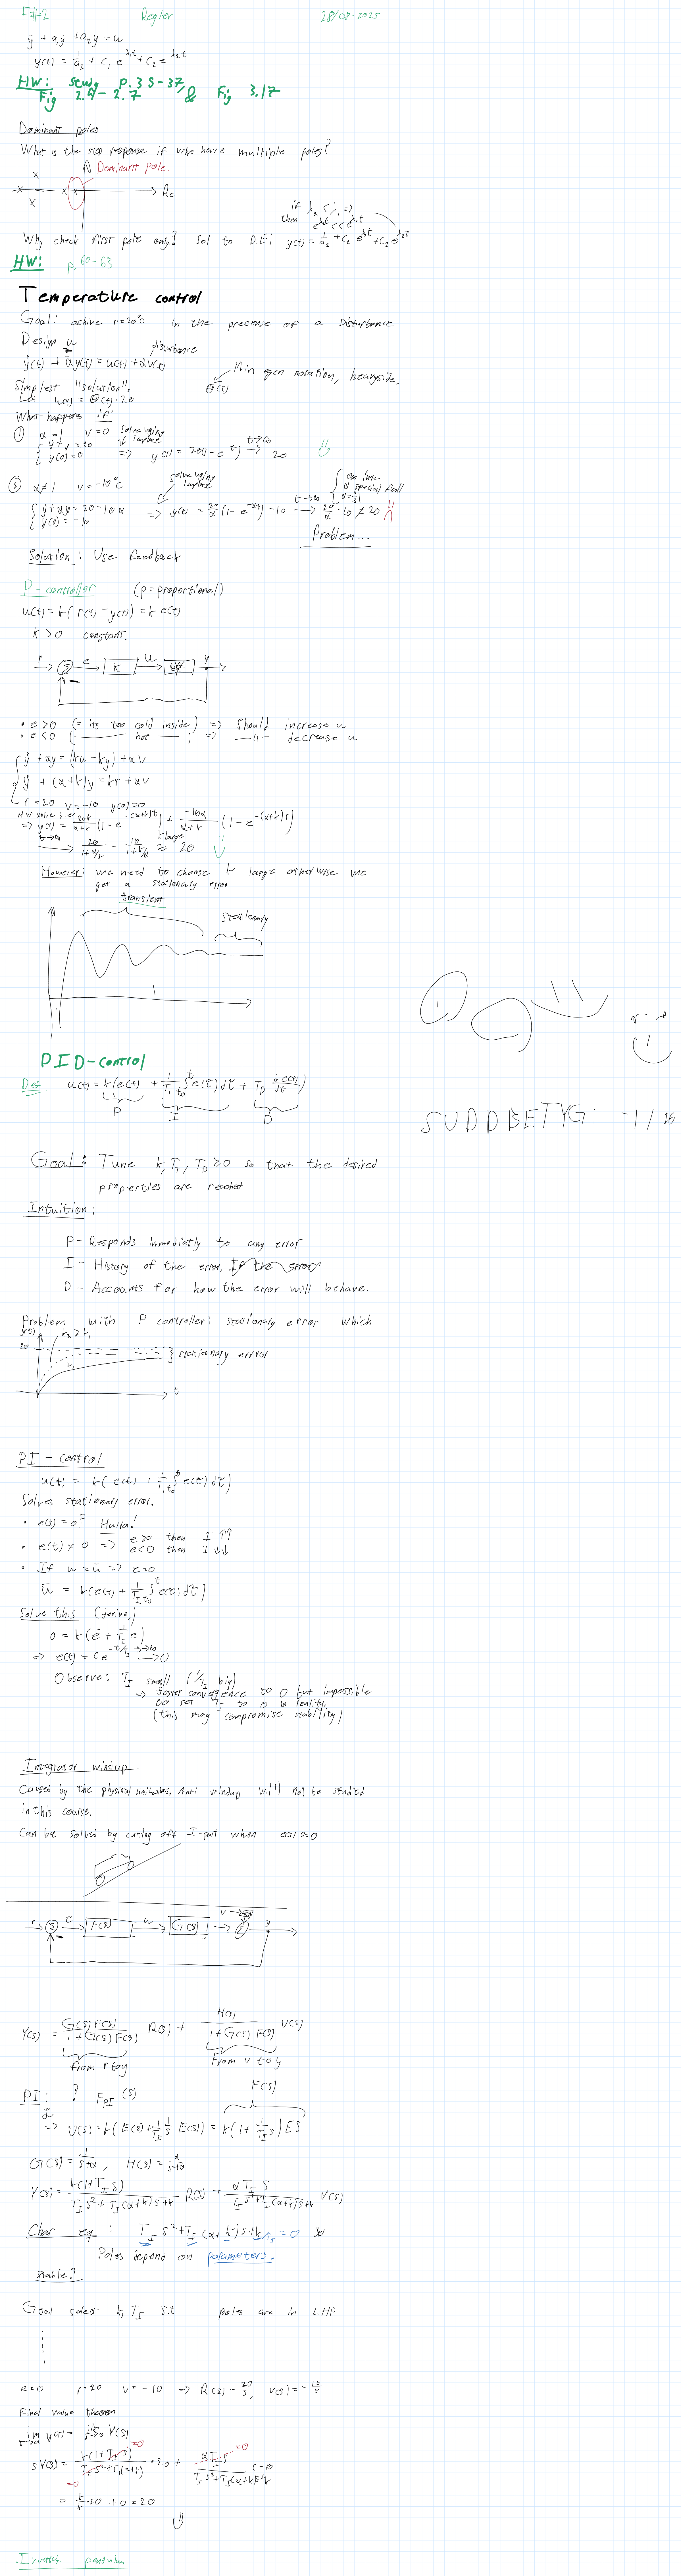 F#2 Regler 28/08-2025
ÿ + a₁ẏ + a₂y = u
y(t) = 1/a₂ + C₁ e^λ₁t + C₂ e^λ₂t
HW: study p.35-37,
Fig 2.4-2.7 & Fig 3.17
Dominant poles
What is the step response if whe have multiple poles?
Dominant pole.
Re
if λ₂ < λ₁ =>
then e^λ₂t << e^λ₁t
Why check first pole only? Sol to D.E: y(t) = 1/a₂ + C₂ e^λ₁t + C₂ e^λ₂t
HW: p. 60-63
Temperature control
Goal: achive r=20°C in the precense of a Disturbance
Design u
disturbance
ẏ(t) + αy(t) = u(t) + αv(t)
Min egen notation, heavyside.
θ(t)
Simplest "solution".
Let u(t) = θ(t)·20
What happens if
① α=1 v=0
solve using laplace
{ ẏ+y = 20
y(0)=0 => y(t) = 20(1-e^-t) t→∞ → 20
② α≠1 v=-10°C
solve using laplace
{ ẏ+αy = 20-10α
y(0) = -10 => y(t) = 20/α (1-e^-αt) - 10 t→∞ → 20/α - 10 ≠ 20
Problem...
Solution: Use feedback
P-controller (p=proportional)
u(t) = k(r(t) - y(t)) = k e(t)
K > 0 constant.
r Σ e K u y
−
• e>0 (= its too cold inside) => Should increase u
• e<0 (—— hot ——) => —||— decrease u
{ ẏ + αy = (ku - ky) + αV
ẏ + (α+k)y = kr + αV
r = 20 v = -10 y(0)=0
HW solve d.e
=> y(t) = 20k/(α+k) (1-e^-(α+k)t) + -10α/(α+k) (1-e^-(α+k)t)
t→∞ → 20/(1+α/k) - 10/(1+k/α) ≈ 20 k large
However: we need to choose k large otherwise we
get a stationary error
transient
stationary
PID-control
Def. u(t) = k(e(t) + 1/T_I ∫_t₀^t e(τ)dτ + T_D de(t)/dt)
P I D
SUDDBETYG: -1/10
Goal: Tune k, T_I, T_D ≥ 0 so that the desired
properties are reached
Intuition:
P - Responds inmediatly to any error
I - History of the error. If the error
D - Accounts for how the error will behave.
Problem with P controller: stationary error which
y(t) k₂ > k₁
20
k₁
} stationary error
t
PI - control
u(t) = k(e(t) + 1/T_I ∫_t₀^t e(τ)dτ)
Solves stationary error.
• e(t) = 0? Hurra!
• e(t) ≠ 0 => e>0 then I ↑↑
e<0 then I ↓↓
• If u = ū => e=0
ū = k(e(t) + 1/T_I ∫_t₀^t e(τ)dτ)
Solve this (derive,)
0 = k(ė + 1/T_I e)
=> e(t) = C e^-t/T_I t→∞ → 0
Observe: T_I small (1/T_I big)
=> faster convergence to 0 but impossible
to set T_I to 0 in reality.
(this may compromise stability)
Integrator windup
Caused by the physical limitations. Anti windup will not be studied
in this course.
Can be solved by cutting off I-part when e(t) ≈ 0
r Σ e F(s) u G(s) v Σ y
−
Y(s) = G(s)F(s)/(1+G(s)F(s)) R(s) + H(s)/(1+G(s)F(s)) V(s)
from r to y From v to y
PI: ? F_PI (s) F(s)
ℒ
=> U(s) = k(E(s) + 1/T_I 1/s E(s)) = k(1 + 1/(T_I s)) E(s)
G(s) = 1/(s+α), H(s) = α/(s+α)
Y(s) = k(1+T_I s)/(T_I s² + T_I(α+k)s + k) R(s) + αT_I s/(T_I s² + T_I(α+k)s + k) V(s)
Char eq: T_I s² + T_I(α+k)s + k = 0 so
Poles depend on parameters.
stable?
Goal select k, T_I s.t poles are in LHP
e=0 r=20 v=-10 → R(s) = 20/s, V(s) = -10/s
Final value theorem
lim t→∞ y(t) = lim s→0 s Y(s)
sY(s) = k(1+T_I s)/(T_I s² + T_I(α+k)) · 20 + αT_I s/(T_I s² + T_I(α+k)s + k) (-10
=0 =0 =0
= k/k · 20 + 0 = 20
Inverted pendulum